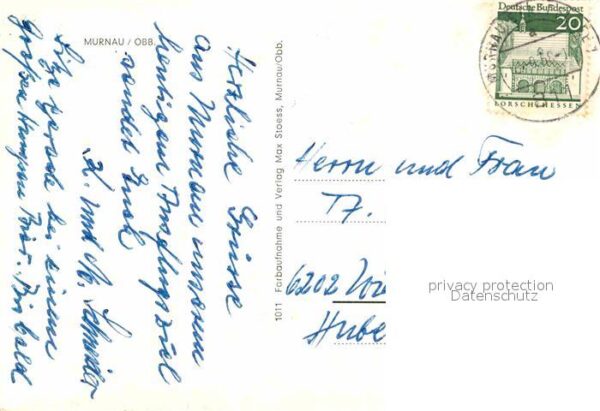 MURNAU / OBB.
Herzliche Grüsse
aus Murnau unserem
heutigem Ausflugsziel
sendet Euch
K. und M. Schneider
Sitze gerade bei einem
grossen Humpen Bier. Bis bald
1011 Farbaufnahme und Verlag Max Stoess, Murnau/Obb.
Deutsche Bundespost
20
LORSCH/HESSEN
MURNAU
Herrn und Frau
6202 Wie
Hube
privacy protection
Datenschutz